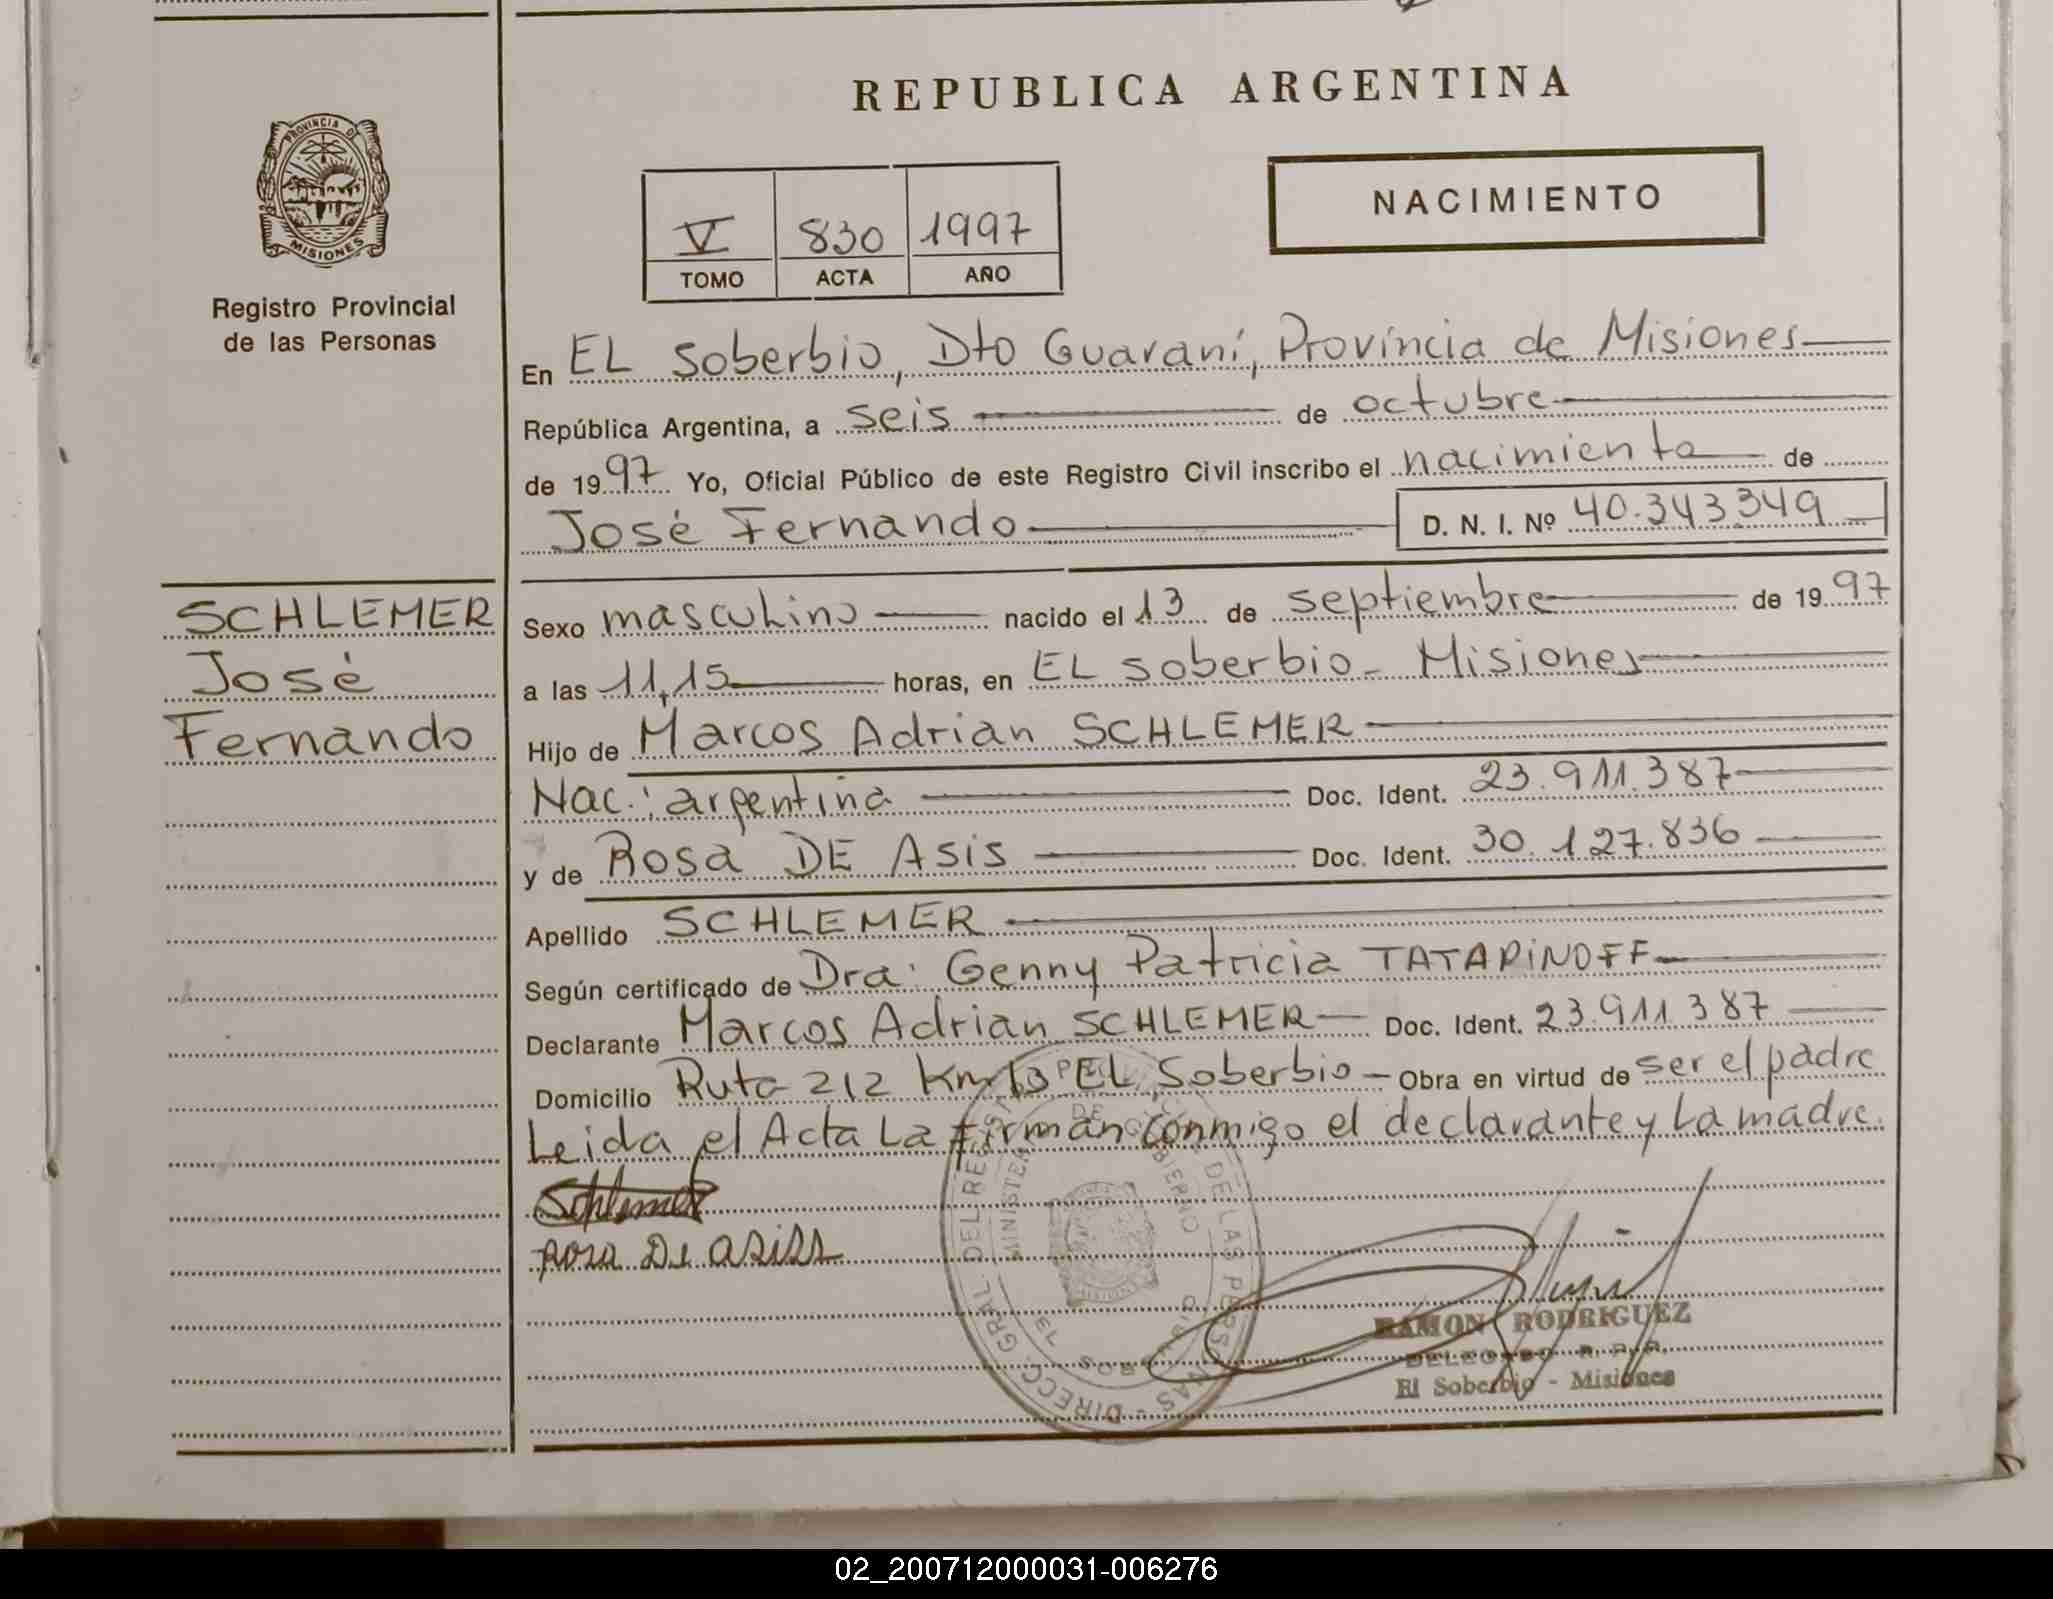 REPUBLICA ARGENTINA
PROVINCIA DE
MISIONES
Registro Provincial
de las Personas
V 830 1997
TOMO ACTA AÑO
NACIMIENTO
En EL Soberbio, Dto Guaraní, Provincia de Misiones
República Argentina, a seis de octubre
de 1997 Yo, Oficial Público de este Registro Civil inscribo el nacimiento de
José Fernando D. N. I. Nº 40.343.349
SCHLEMER
José
Fernando
Sexo masculino nacido el 13 de septiembre de 1997
a las 11,15 horas, en EL Soberbio - Misiones
Hijo de Marcos Adrian SCHLEMER
Nac.: argentina Doc. Ident. 23.911.387
y de Rosa DE ASiS Doc. Ident. 30.127.836
Apellido SCHLEMER
Según certificado de Dra. Genny Patricia TATARiNOFF
Declarante Marcos Adrian SCHLEMER Doc. Ident. 23.911.387
Domicilio Ruta 212 Km 13 EL Soberbio - Obra en virtud de ser el padre
Leida el Acta La firman conmigo el declarante y La madre.
Schlemer
Rosa De
DIRECC. GRAL DEL REGIST DE LAS PERSONAS
RAMON RODRIGUEZ
DELEGADO R. P. P.
El Soberbio - Misiones
02_200712000031-006276